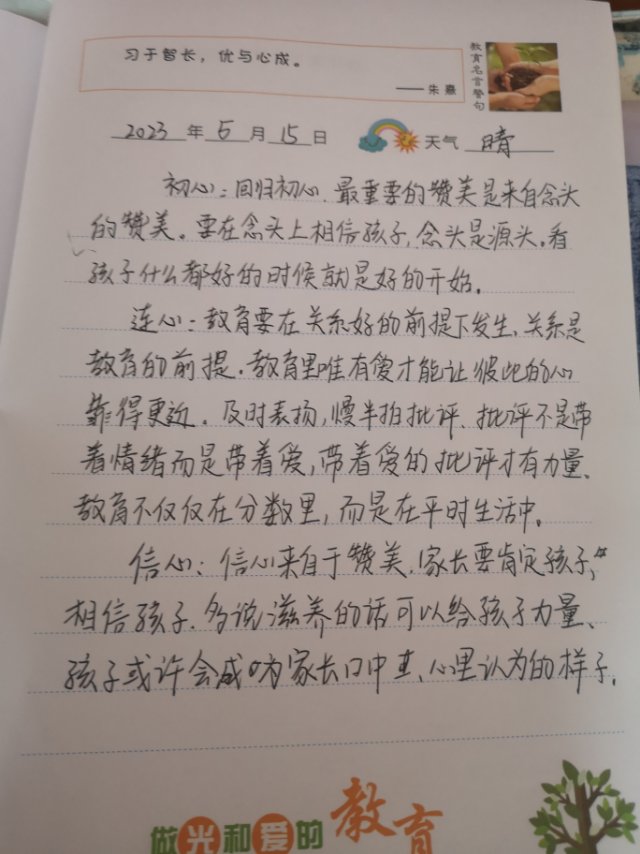 习于智长，优与心成。
——朱熹
教育名言警句
2023年5月15日 天气 晴
初心：回归初心，最重要的赞美是来自念头
的赞美。要在念头上相信孩子，念头是源头。看
孩子什么都好的时候就是好的开始。
连心：教育要在关系好的前提下发生，关系是
教育的前提。教育里唯有爱才能让彼此的心
靠得更近。及时表扬，慢半拍批评、批评不是带
着情绪而是带着爱，带着爱的批评才有力量。
教育不仅仅在分数里，而是在平时生活中。
信心：信心来自于赞美，家长要肯定孩子，
相信孩子。多说滋养的话可以给孩子力量、
孩子或许会成为家长口中且、心里认为的样子。
做光和爱的教育